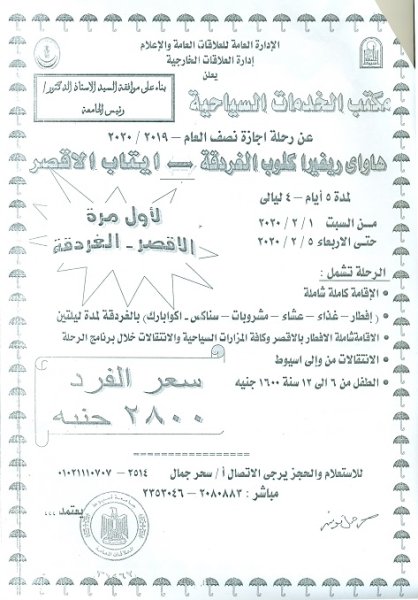 الإدارة العامة للعلاقات العامة والإعلام
إدارة العلاقات الخارجية
يعلن
بناء على موافقة السيد الاستاذ الدكتور/
رئيس الجامعة
مكتب الخدمات السياحية
عن رحلة اجازة نصف العام – ٢٠١٩ / ٢٠٢٠
هاواى ريفيرا كلوب الغردقة – ايتاب الاقصر
لمدة ٥ أيام – ٤ ليالى
من السبت ١ / ٢ / ٢٠٢٠
حتى الاربعاء ٥ / ٢ / ٢٠٢٠
لأول مرة
الاقصر - الغردقة
الرحلة تشمل :
• الإقامة كاملة شاملة
• (إفطار – غذاء – عشاء – مشروبات – سناكس - اكوابارك) بالغردقة لمدة ليلتين
• الاقامة شاملة الافطار بالاقصر وكافة المزارات السياحية والانتقالات خلال برنامج الرحلة
• الانتقالات من وإلى اسيوط
• الطفل من ٦ الى ١٢ سنة ١٦٠٠ جنيه
سعر الفرد
٢٨٠٠ جنيه
====================
للاستعلام والحجز يرجى الاتصال أ / سحر جمال ٢٥١٤ – ٠١٠٢١١١٠٧٠٧
مباشر : ٢٠٨٠٨٨٣ – ٢٣٥٢٠٤٦
يعتمد ،،،